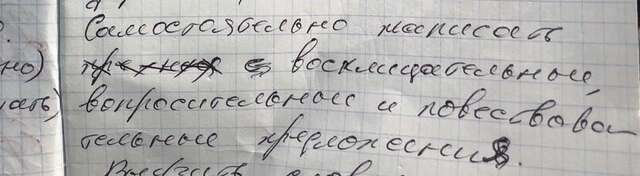 но) Самостоятельно написать
восклицательные,
ать) вопросительные и повествова
тельные предложения.